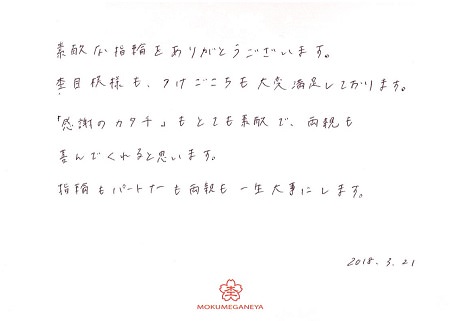 素敵な指輪をありがとうございます。
杢目模様も、つけごこちも大変満足しております。
「感謝のカタチ」もとても素敵で、両親も
喜んでくれると思います。
指輪もパートナーも両親も一生大事にします。
2018.3.21
杢
MOKUMEGANEYA